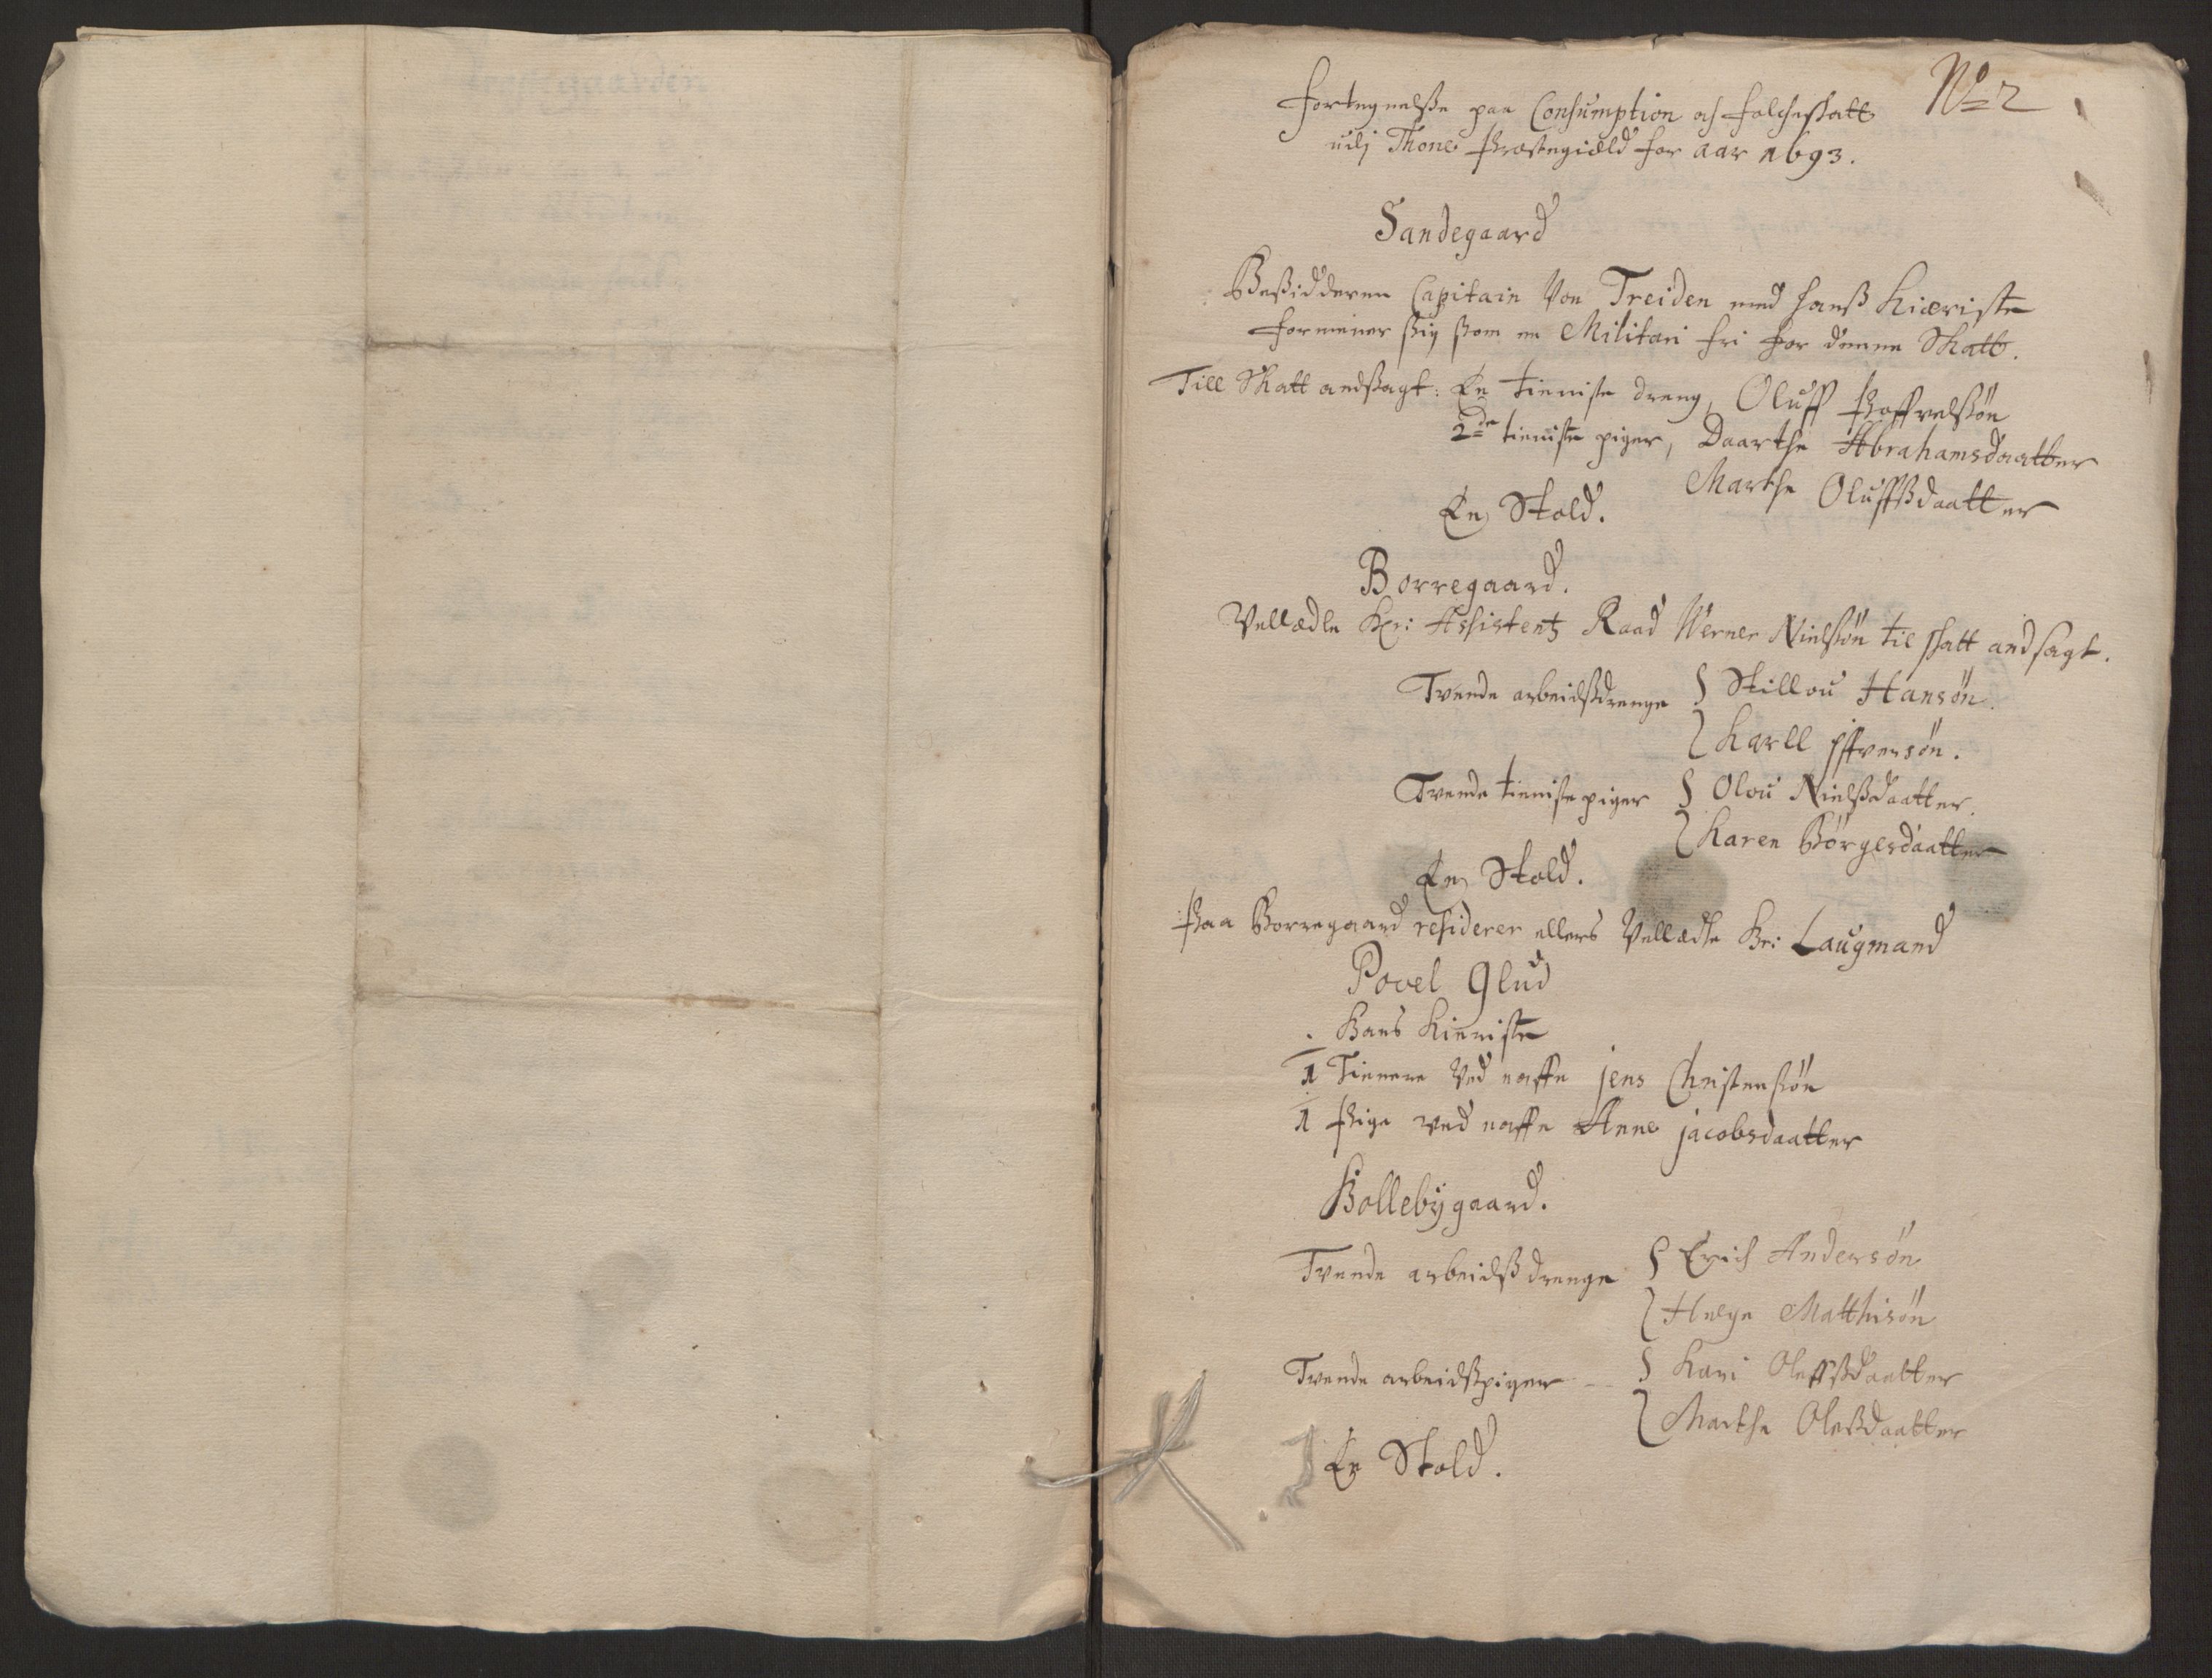 No 2
Fortegnelsse paa Consumption och folcheskatt
udj Thone Præstegiæld for aar 1693.
Sandegaard
Bessidderen Capitain Von Treiden med hanss Kiæriste
formeiner ssig ssom en Militari fri for denne Skatt.
Till Skatt andssagt: En tieniste dreng, Oluff Poffvelssøn
2de tieniste piger, Daarthe Abrahamsdaatter
Marthe Oluffssdaatter
En Stold.
Borregaard.
Vellædle Hr: Assistentz Raad Werner Nielssøn til skatt andsagt.
Tvende arbeidssdrenge { Stillou Hansøn
{ Karll Iffversøn.
Tvende tieniste piger { Olou Nielssdaatter.
{ Karen Børgesdaatter
En Stold.
Paa Borregaard residerer ellers Vellædle Hr: Laugmand
Povel Glud
. Hans Kieriste
1 Tienere Ved naffn jens Christenssøn
1 Pige ved naffn Anne jacobsdaatter
Hollebygaard.
Tvende arbeidss drenge { Erich Andersøn
{ Helge Matthisøn
Tvende arbeidsspiger -- { Kari Oleffssdaatter
{ Marthe Olessdaatter
En Stold.